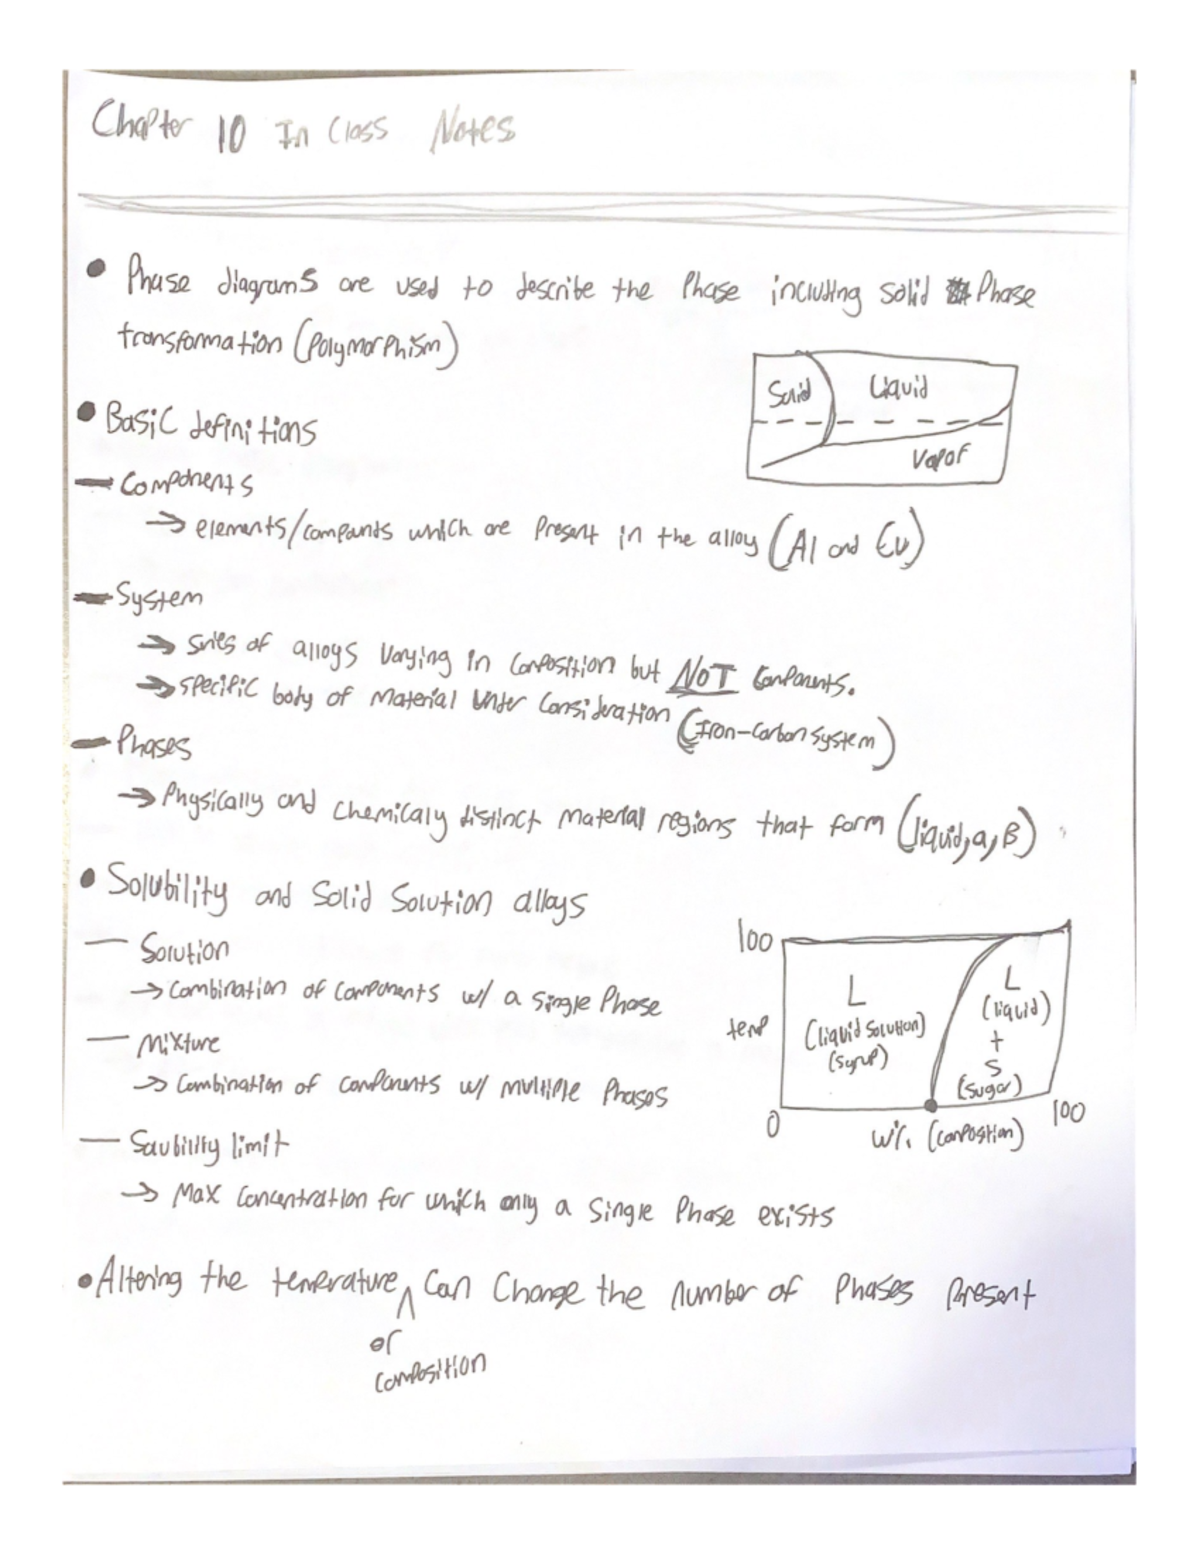 Chapter 10 In Class Notes
• Phase diagrams are used to describe the Phase including solid Phase
transformation (Polymorphism)
Solid
Liquid
Vapor
• Basic definitions
— Components
→ elements/compounds which are Present in the alloy (Al and Cu)
— System
→ Series of alloys Varying in Composition but NOT Components.
→ Specific body of Material Under Consideration (Iron-Carbon System)
— Phases
→ Physically and chemicaly distinct material regions that form (liquid, a, B)
• Solubility and Solid Solution alloys
— Solution
→ Combination of Components w/ a Single Phase
— Mixture
→ Combination of components w/ multiple Phases
— Solubility limit
→ Max Concentration for which only a Single Phase exists
100
temp
L
(liquid Solution)
(syrup)
L
(liquid)
+
S
(sugar)
0
W%. (composition)
100
• Altering the temperature ^ Can Change the Number of Phases Present
or
composition